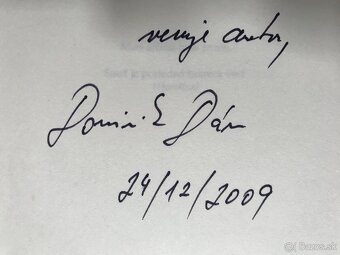 venuje autor,
Dominik Dán
24/12/2009
© Bazos.sk